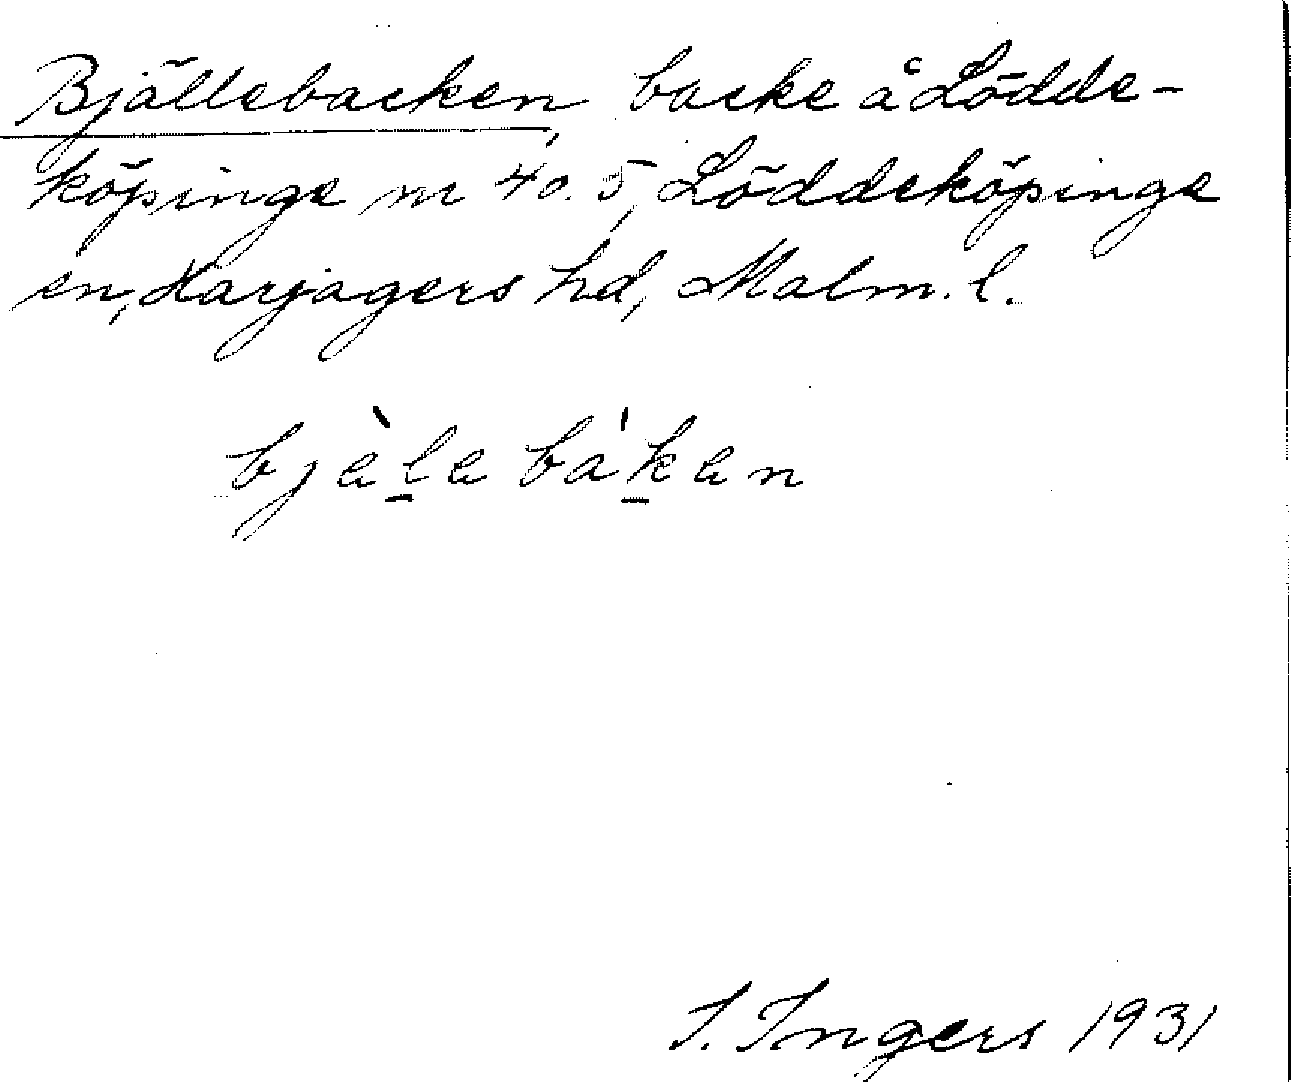 Bjällebacken, backe å Lödde-
köpinge nr 40.5, Löddeköpinge
sn, Harjagers hd, Malm. l.
bjèle bákan
I. Ingers 1931